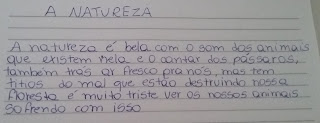 A NATUREZA
A natureza é bela com o som dos animais
que existem nela e o cantar dos pássaros,
também tras ar fresco pra nós, mas tem
titios do mal que estão destruindo nossa
floresta é muito triste ver os nossos animais
sofrendo com isso